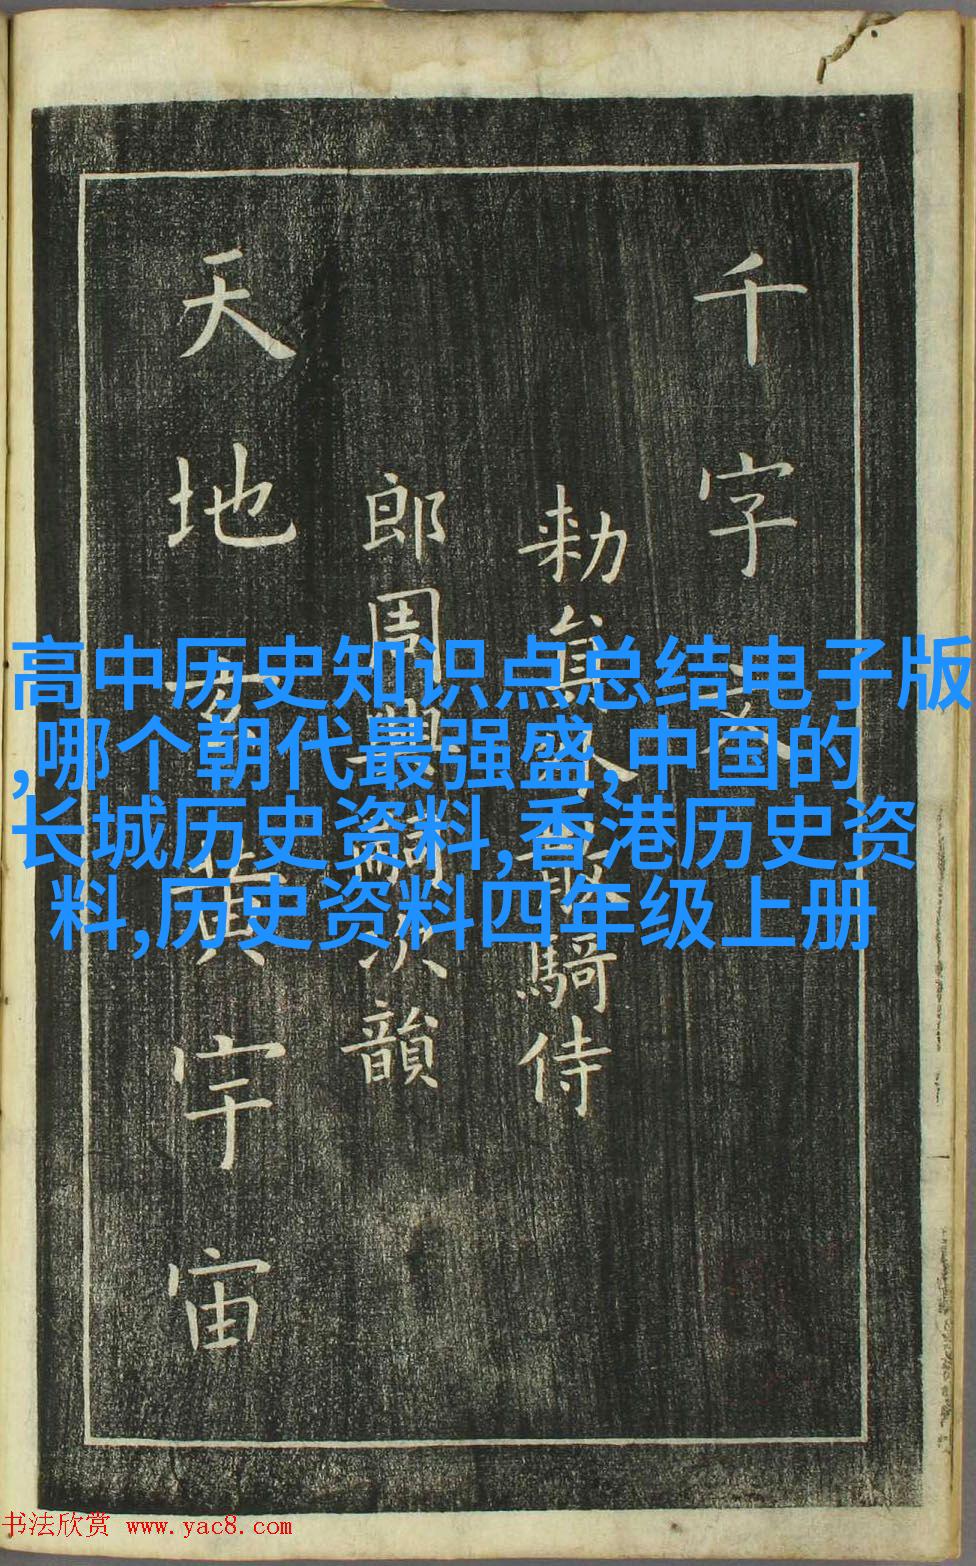 千字文
勅員外散騎侍
郎周興嗣次韻
天地玄黃宇宙
高中历史知识点总结电子版
,哪个朝代最强盛,中国的
长城历史资料,香港历史资
料,历史资料四年级上册
书法欣赏 www.yac8.com